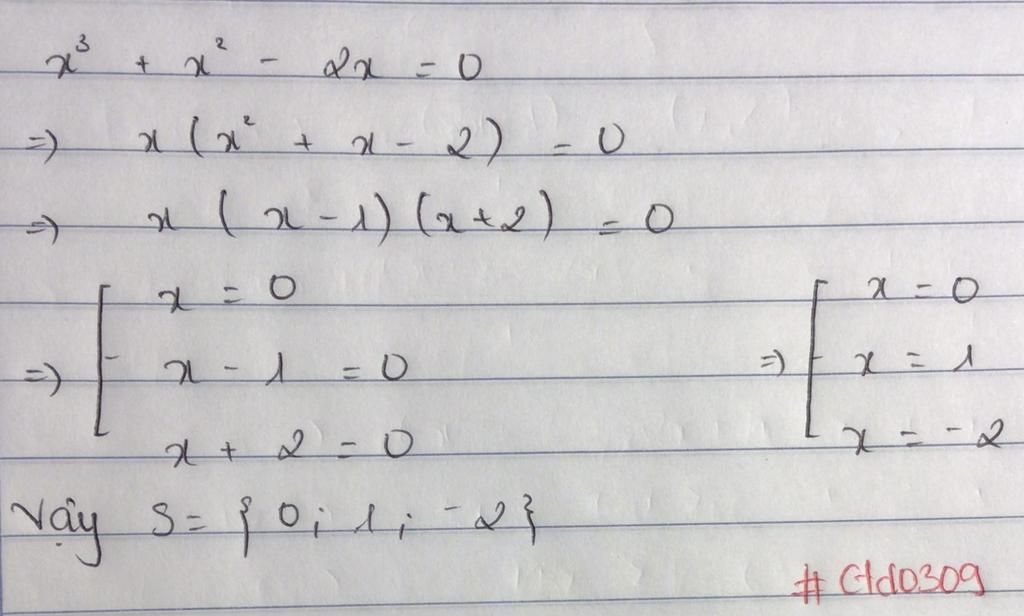 x³ + x² - 2x = 0
=> x (x² + x - 2) = 0
=> x ( x - 1) (x + 2) = 0
=> [ x = 0 => [ x = 0
x - 1 = 0 x = 1
x + 2 = 0 x = -2
Vậy S = { 0 ; 1 ; -2 }
# Ctd0309